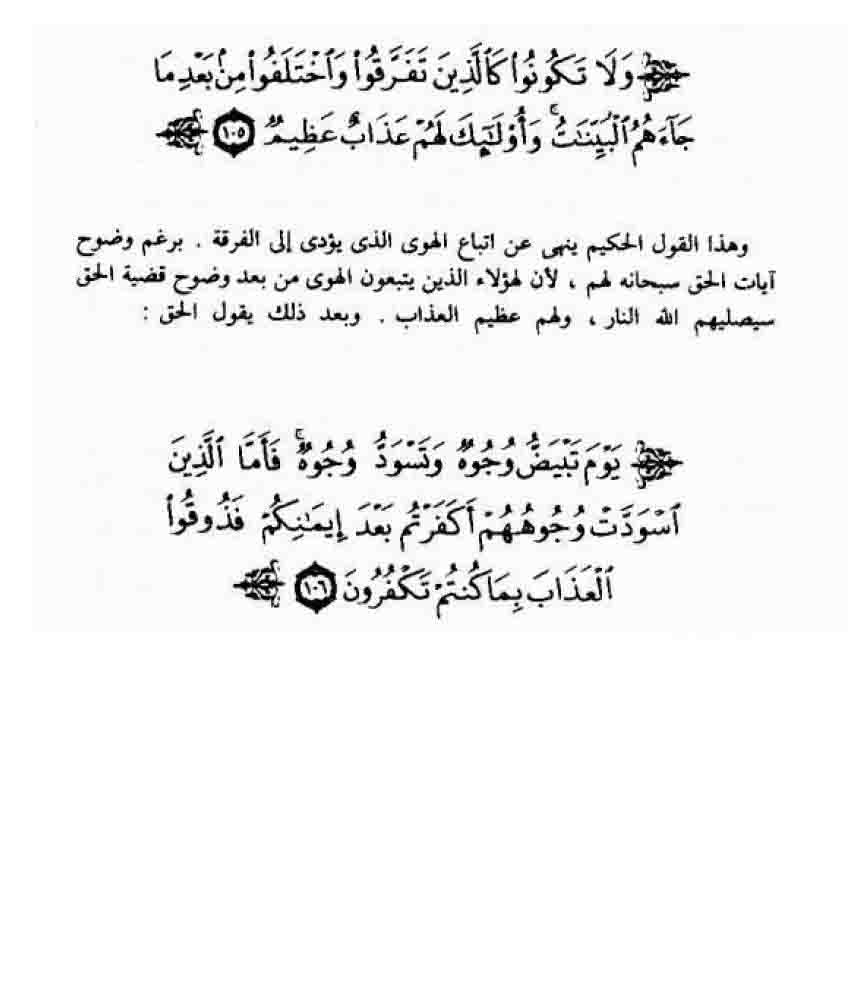 ﴿ وَلَا تَكُونُوا۟ كَٱلَّذِينَ تَفَرَّقُوا۟ وَٱخْتَلَفُوا۟ مِنۢ بَعْدِ مَا
جَآءَهُمُ ٱلْبَيِّنَـٰتُ ۚ وَأُو۟لَـٰٓئِكَ لَهُمْ عَذَابٌ عَظِيمٌ ١٠٥ ﴾
وهذا القول الحكيم ينهى عن اتباع الهوى الذى يؤدى إلى الفرقة . برغم وضوح
آيات الحق سبحانه لهم ، لأن لهؤلاء الذين يتبعون الهوى من بعد وضوح قضية الحق
سيصليهم الله النار ، ولهم عظيم العذاب . وبعد ذلك يقول الحق :
﴿ يَوْمَ تَبْيَضُّ وُجُوهٌ وَتَسْوَدُّ وُجُوهٌ ۚ فَأَمَّا ٱلَّذِينَ
ٱسْوَدَّتْ وُجُوهُهُمْ أَكَفَرْتُم بَعْدَ إِيمَـٰنِكُمْ فَذُوقُوا۟
ٱلْعَذَابَ بِمَا كُنتُمْ تَكْفُرُونَ ١٠٦ ﴾